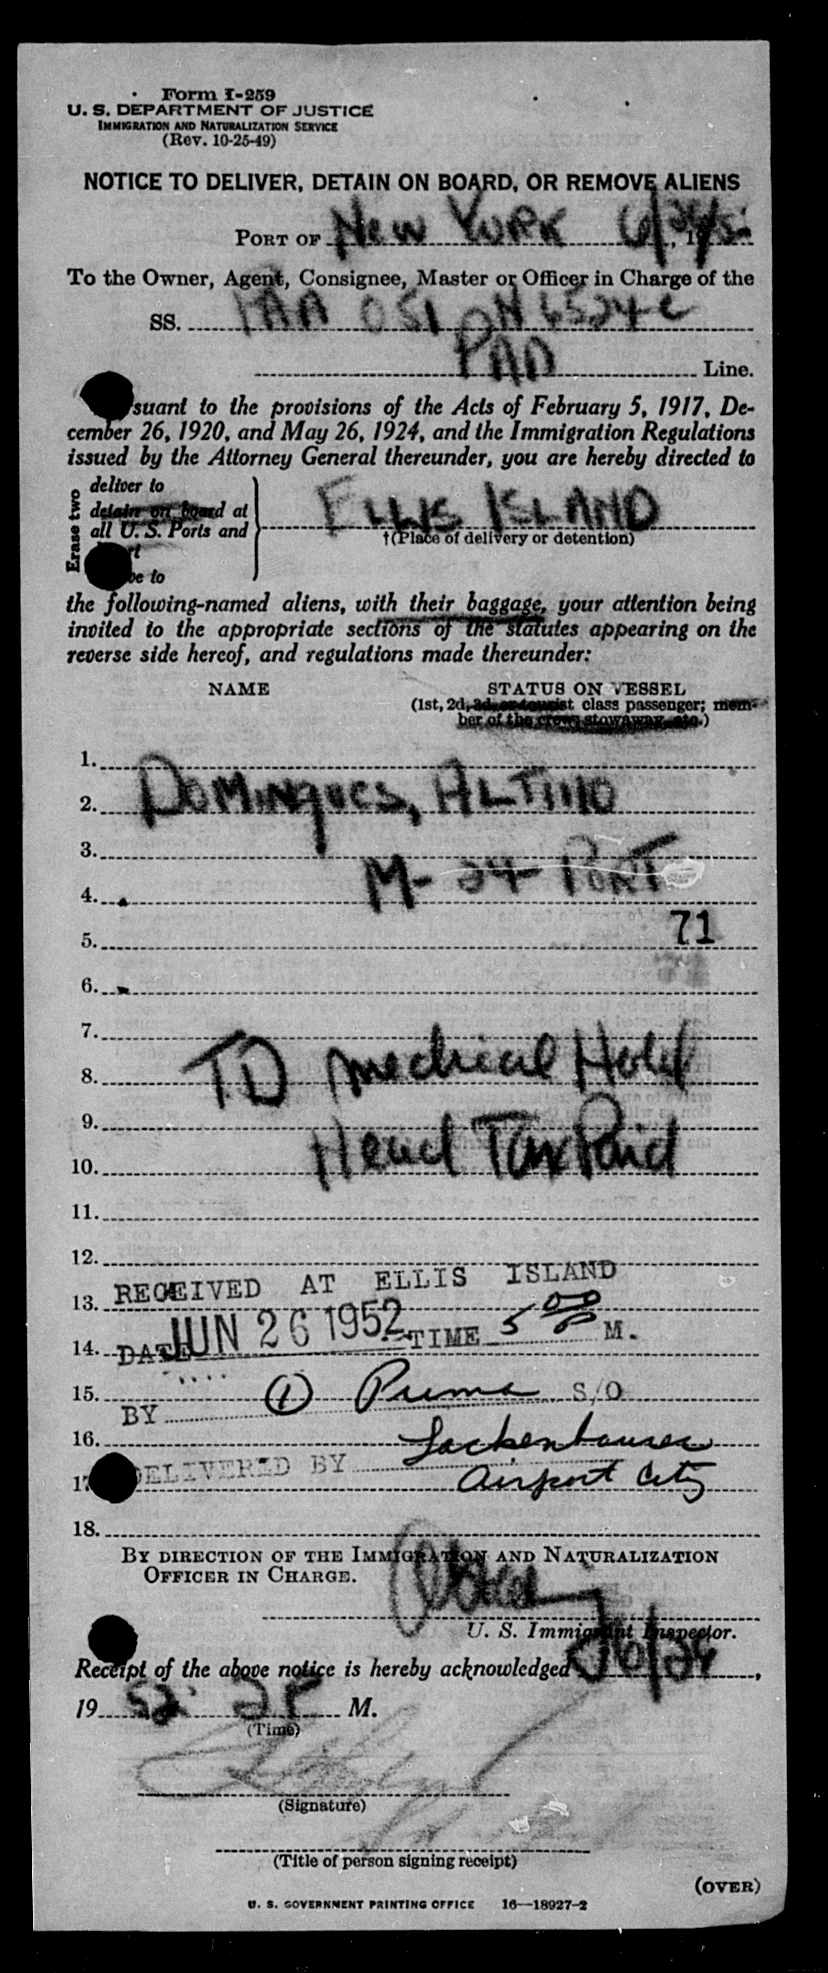 Form I-259
U. S. DEPARTMENT OF JUSTICE
IMMIGRATION AND NATURALIZATION SERVICE
(Rev. 10-25-49)
NOTICE TO DELIVER, DETAIN ON BOARD, OR REMOVE ALIENS
PORT OF New York 6/26/52
To the Owner, Agent, Consignee, Master or Officer in Charge of the
SS. PAA 051 N6524C
PAA Line.
suant to the provisions of the Acts of February 5, 1917, De-
cember 26, 1920, and May 26, 1924, and the Immigration Regulations
issued by the Attorney General thereunder, you are hereby directed to
Erase two
deliver to
detain on board at
all U. S. Ports and
ELLIS ISLAND
†(Place of delivery or detention)
be to
the following-named aliens, with their baggage, your attention being
invited to the appropriate sections of the statutes appearing on the
reverse side hereof, and regulations made thereunder:
NAME STATUS ON VESSEL
(1st, 2d, 3d, or tourist class passenger; mem-
ber of the crew, stowaway, etc.)
1.
2. DOMINgues, ALTINO
3.
4. M-24-PORT
5. 71
6.
7.
8. TD medical Hold
9.
10. Head Tax Paid
11.
12.
RECEIVED AT ELLIS ISLAND
13.
14. DATE JUN 26 1952 TIME 5 00 P M.
15. BY 1 Puma S/O
16. Lackenhauser
17. DELIVERED BY Airport City
18.
BY DIRECTION OF THE IMMIGRATION AND NATURALIZATION
OFFICER IN CHARGE.
U. S. Immigrant Inspector.
Receipt of the above notice is hereby acknowledged 6/26,
19 52 2P M.
(Time)
(Signature)
(Title of person signing receipt)
(OVER)
U. S. GOVERNMENT PRINTING OFFICE 16—18927-2